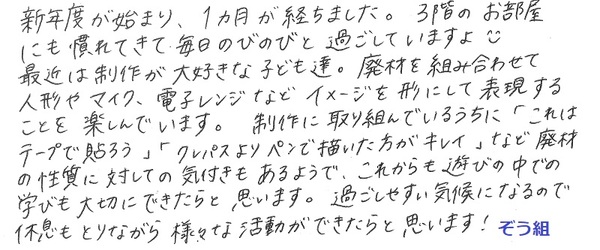 新年度が始まり、1カ月が経ちました。3階のお部屋
にも慣れてきて毎日のびのびと過ごしていますよ☺
最近は制作が大好きな子ども達。廃材を組み合わせて
人形やマイク、電子レンジなどイメージを形にして表現する
ことを楽しんでいます。制作に取り組んでいるうちに「これは
テープで貼ろう」「クレパスよりペンで描いた方がキレイ」など廃材
の性質に対しての気付きもあるようで、これからも遊びの中での
学びも大切にできたらと思います。過ごしやすい気候になるので
休息もとりながら様々な活動ができたらと思います！ぞう組